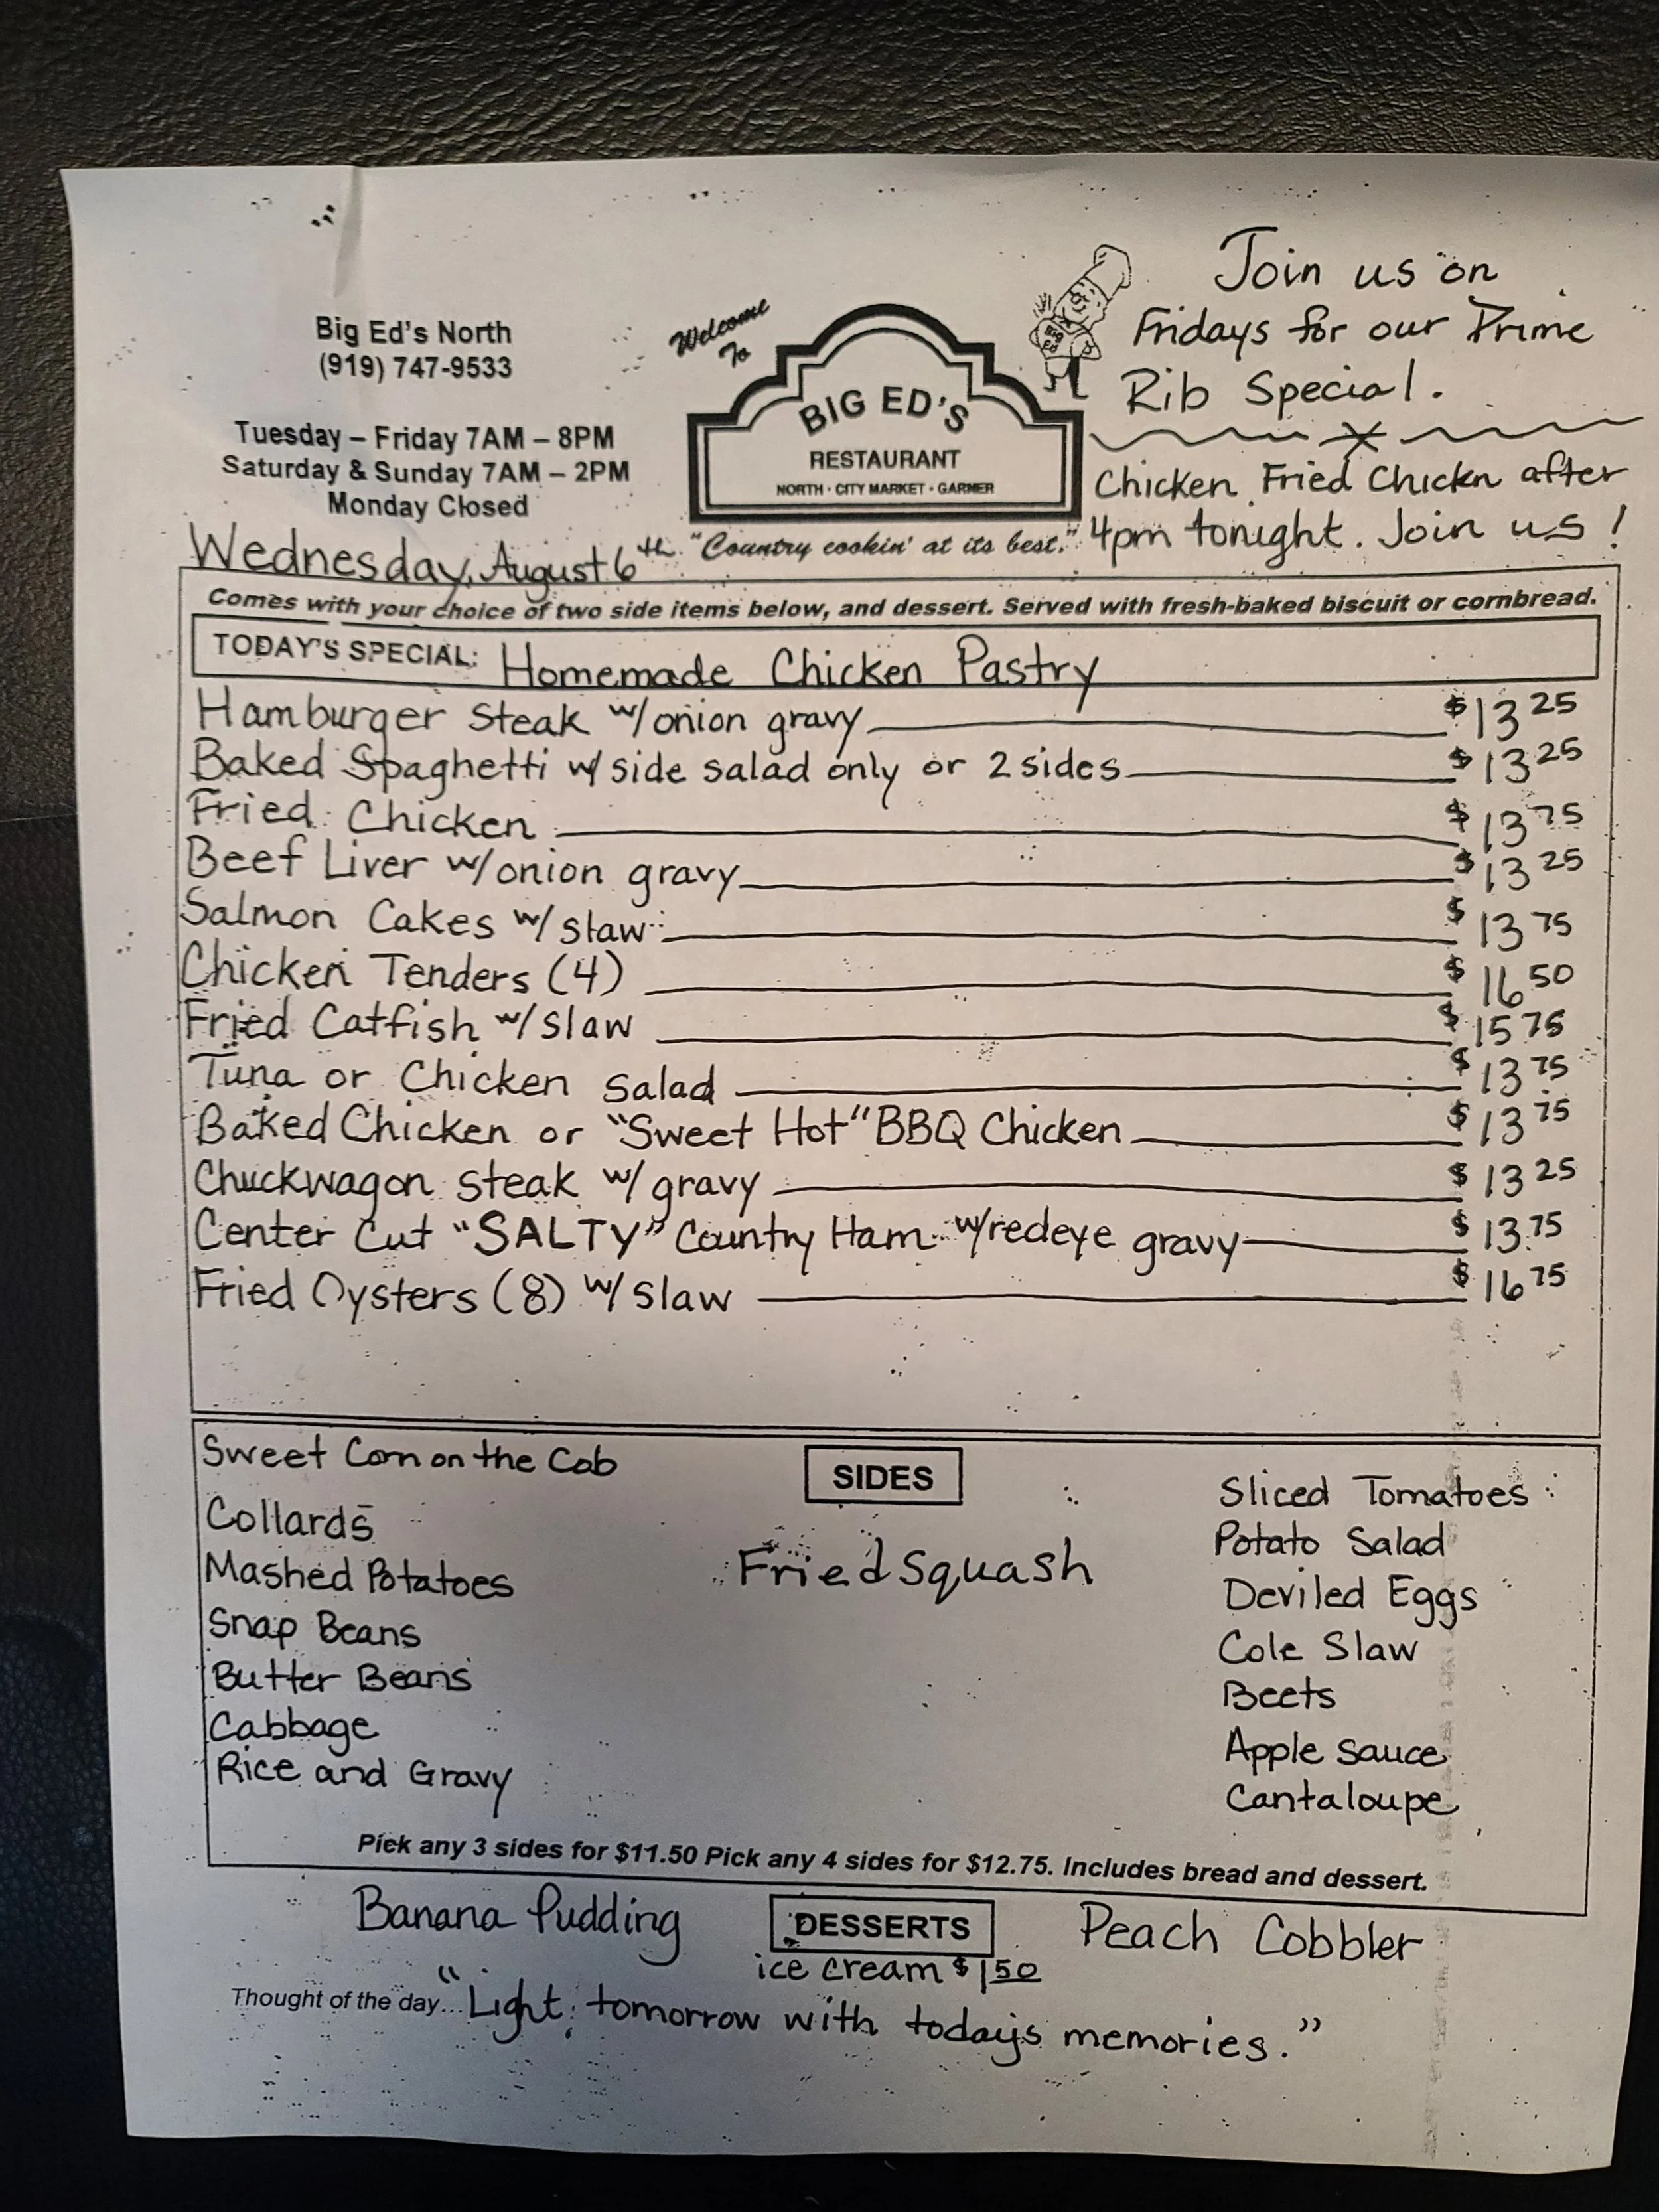 Big Ed's North
(919) 747-9533
Tuesday – Friday 7AM – 8PM
Saturday & Sunday 7AM – 2PM
Monday Closed
Welcome
To
BIG ED'S
RESTAURANT
NORTH · CITY MARKET · GARNER
"Country cookin' at its best."
Big
Ed
Join us on
Fridays for our Prime
Rib Special.
Chicken Fried Chickn after
4pm tonight. Join us!
Wednesday, August 6th
Comes with your choice of two side items below, and dessert. Served with fresh-baked biscuit or cornbread.
TODAY'S SPECIAL: Homemade Chicken Pastry
Hamburger Steak w/onion gravy $13 25
Baked Spaghetti w/ side salad only or 2 sides $13 25
Fried Chicken $13 75
Beef Liver w/onion gravy $13 25
Salmon Cakes w/ slaw $13 75
Chicken Tenders (4) $16 50
Fried Catfish w/slaw $15 75
Tuna or Chicken Salad $13 75
Baked Chicken or "Sweet Hot" BBQ Chicken $13 75
Chuckwagon Steak w/ gravy $13 25
Center Cut "SALTY" Country Ham w/redeye gravy $13.75
Fried Oysters (8) w/ slaw $16 75
SIDES
Sweet Corn on the Cob
Collards
Mashed Potatoes
Snap Beans
Butter Beans
Cabbage
Rice and Gravy
Fried Squash
Sliced Tomatoes
Potato Salad
Deviled Eggs
Cole Slaw
Beets
Apple Sauce
Cantaloupe
Pick any 3 sides for $11.50 Pick any 4 sides for $12.75. Includes bread and dessert.
Banana Pudding
DESSERTS
Peach Cobbler
ice cream $1 50
Thought of the day... "Light tomorrow with today's memories."